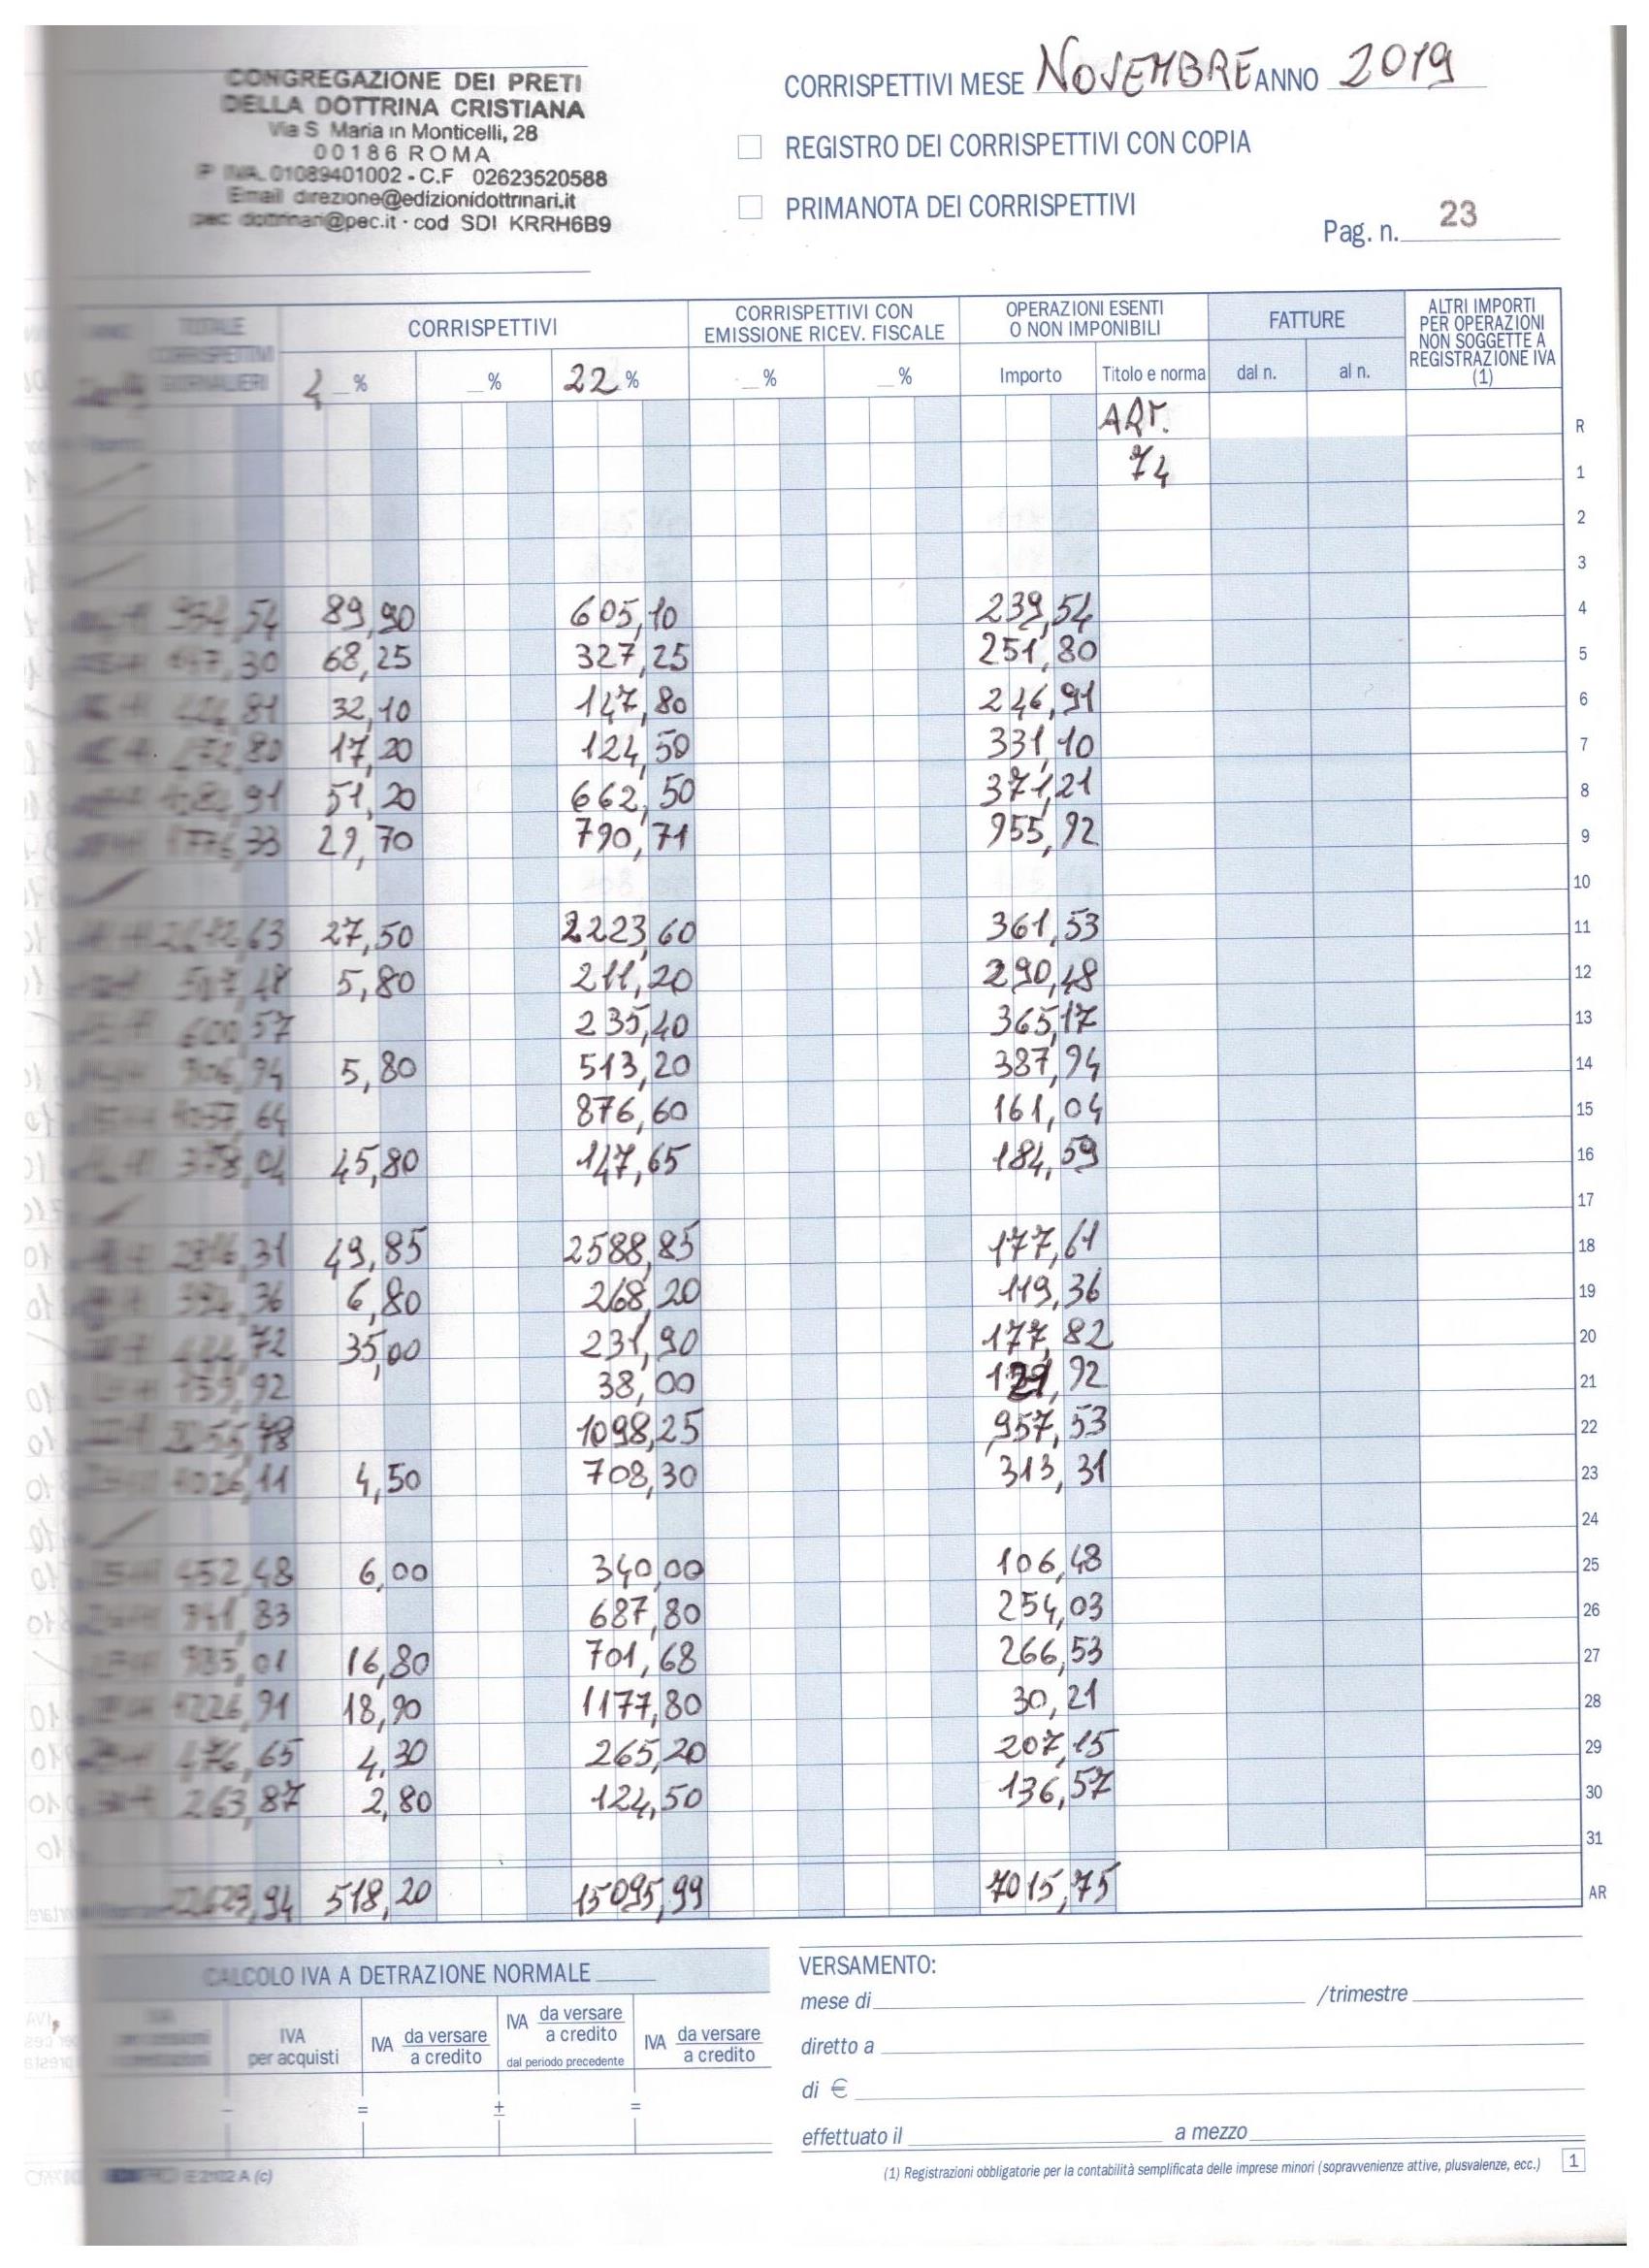 CONGREGAZIONE DEI PRETI
DELLA DOTTRINA CRISTIANA
Via S Maria in Monticelli, 28
00186 ROMA
P IVA. 01089401002 - C.F 02623520588
Email direzione@edizionidottrinari.it
pec dottrinari@pec.it - cod SDI KRRH6B9
CORRISPETTIVI MESE NOVEMBRE ANNO 2019
REGISTRO DEI CORRISPETTIVI CON COPIA
PRIMANOTA DEI CORRISPETTIVI
Pag. n. 23
TOTALE CORRISPETTIVI GIORNALIERI
CORRISPETTIVI
CORRISPETTIVI CON EMISSIONE RICEV. FISCALE
OPERAZIONI ESENTI O NON IMPONIBILI
FATTURE
ALTRI IMPORTI PER OPERAZIONI NON SOGGETTE A REGISTRAZIONE IVA (1)
4 % % 22 % % % Importo Titolo e norma dal n. al n.
ART. R
74 1
2
3
934,54 89,90 605,10 239,54 4
647,30 68,25 327,25 251,80 5
32,10 147,80 246,91 6
17,20 124,50 331,10 7
51,20 662,50 371,21 8
1776,33 29,70 790,71 955,92 9
10
2612,63 27,50 2223,60 361,53 11
507,48 5,80 211,20 290,48 12
600,57 235,40 365,17 13
906,94 5,80 513,20 387,94 14
1037,64 876,60 161,04 15
378,04 45,80 147,65 184,59 16
17
2816,31 49,85 2588,85 177,61 18
394,36 6,80 268,20 119,36 19
444,72 35,00 231,90 177,82 20
159,92 38,00 121,92 21
2055,78 1098,25 957,53 22
1026,11 4,50 708,30 313,31 23
24
452,48 6,00 340,00 106,48 25
941,83 687,80 254,03 26
985,01 16,80 701,68 266,53 27
1226,91 18,90 1177,80 30,21 28
476,65 4,30 265,20 207,15 29
263,87 2,80 124,50 136,57 30
31
22629,94 518,20 15095,99 7015,75 AR
CALCOLO IVA A DETRAZIONE NORMALE
IVA per acquisti
IVA da versare a credito
IVA da versare a credito dal periodo precedente
IVA da versare a credito
– = ± =
VERSAMENTO:
mese di /trimestre
diretto a
di €
effettuato il a mezzo
E 2102 A (c)
(1) Registrazioni obbligatorie per la contabilità semplificata delle imprese minori (sopravvenienze attive, plusvalenze, ecc.) 1